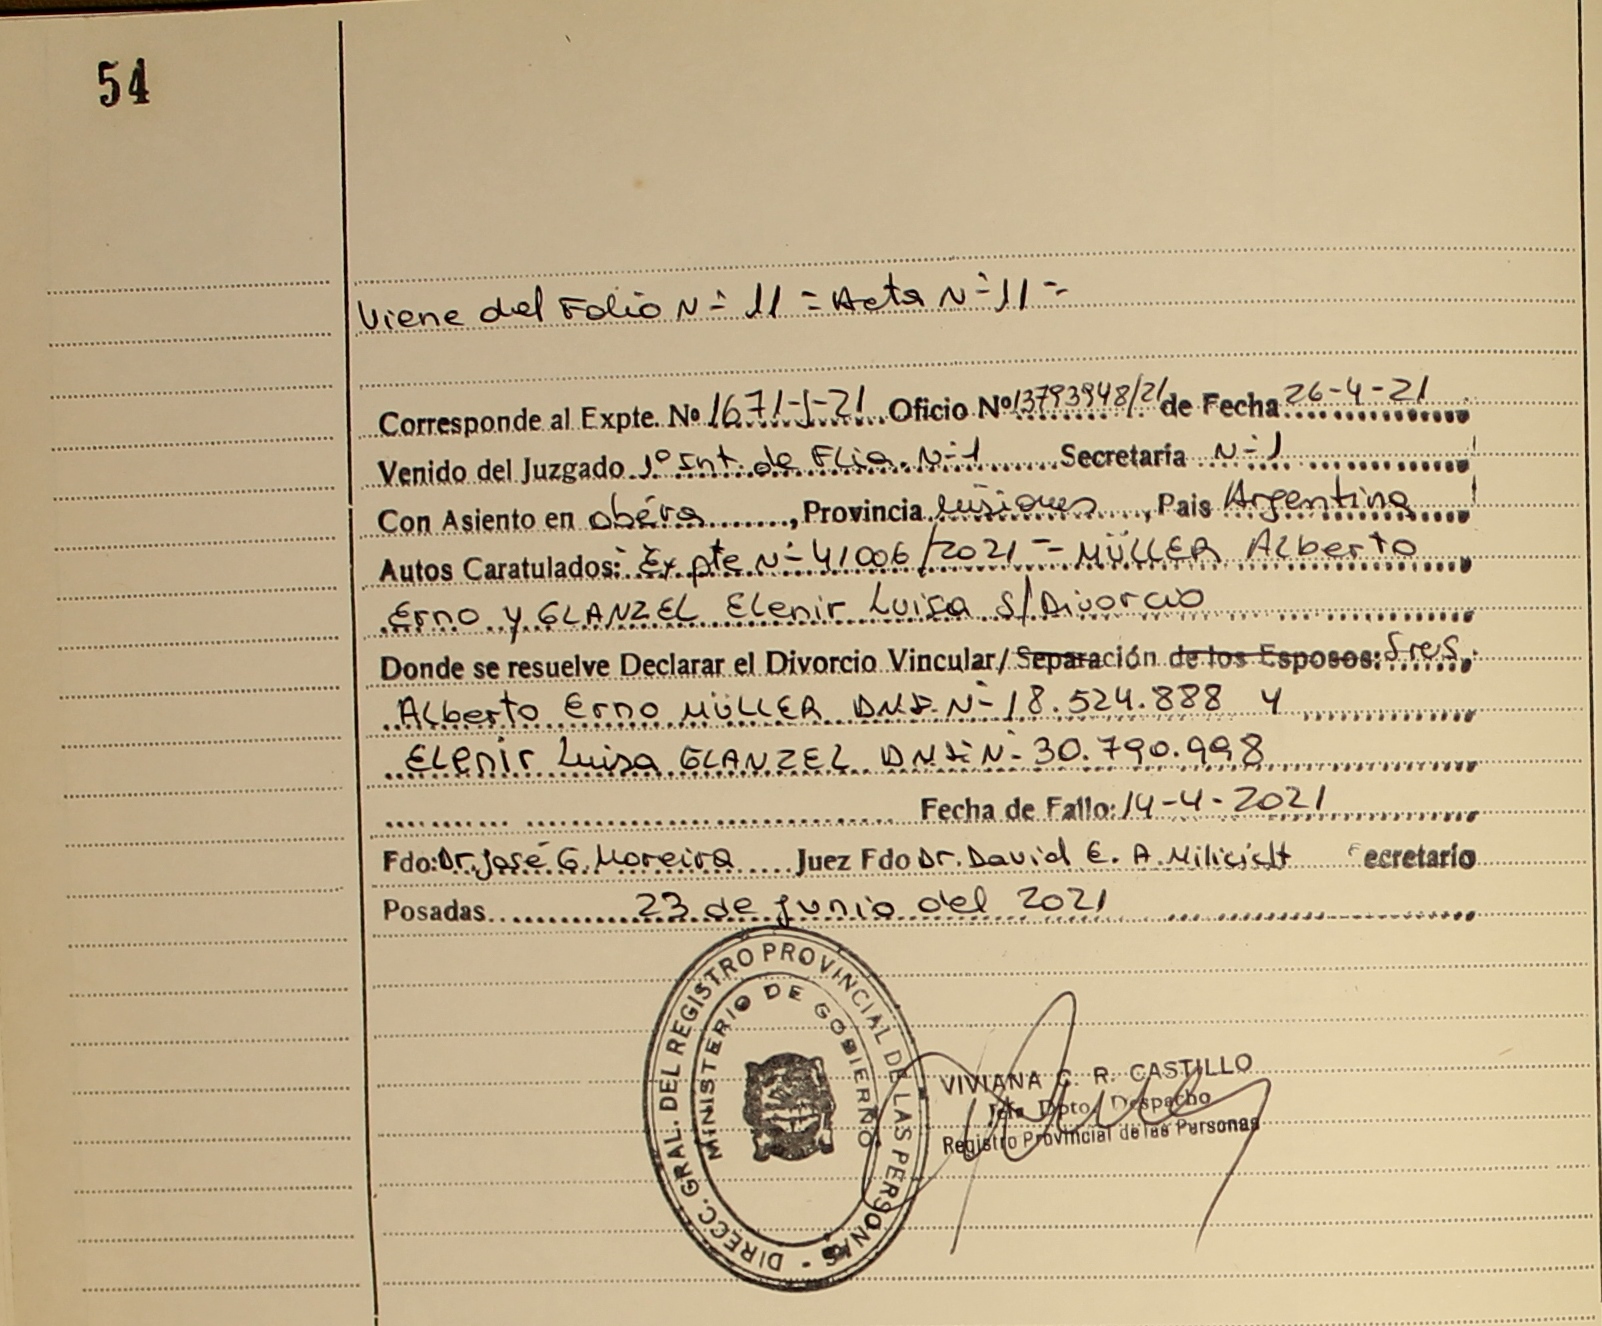 54
Viene del Folio N- 11 = Acta N- 11 =
Corresponde al Expte. Nº 1671-J-21 Oficio Nº 13793948/21 de Fecha 26-4-21
Venido del Juzgado 1º Int. de Flia. N-1 Secretaría N-1
Con Asiento en Oberá, Provincia Misiones, Pais Argentina
Autos Caratulados: Expte N- 41006/2021 - MÜLLER Alberto
Erno y GLANZEL Elenir Luisa S/Divorcio
Donde se resuelve Declarar el Divorcio Vincular/Separación de los Esposos: Sres.
Alberto Erno MÜLLER DNI. N- 18.524.888 y
Elenir Luisa GLANZEL DNI N- 30.790.998
Fecha de Fallo: 14-4-2021
Fdo: Dr. José G. Moreira Juez Fdo Dr. David E. A. ecretario
Posadas 23 de junio del 2021
DIRECC. GRAL. DEL REGISTRO PROVINCIAL DE LAS PERSONAS
MINISTERIO DE GOBIERNO
VIVIANA R. CASTILLO
Jefa Dpto. Despacho
Registro Provincial de las Personas